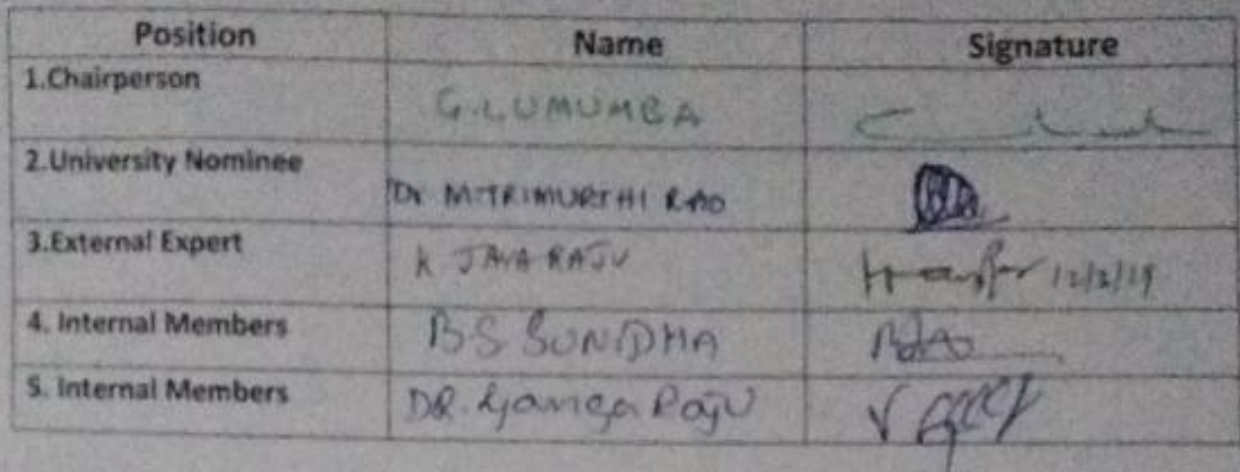 Position Name Signature
1.Chairperson G.LUMUMBA
2.University Nominee Dr M.TRIMURTHI RAO
3.External Expert K JAYA RAJU 12/2/19
4. Internal Members B S SUNIDHA
5. Internal Members DR. Ganga Raju